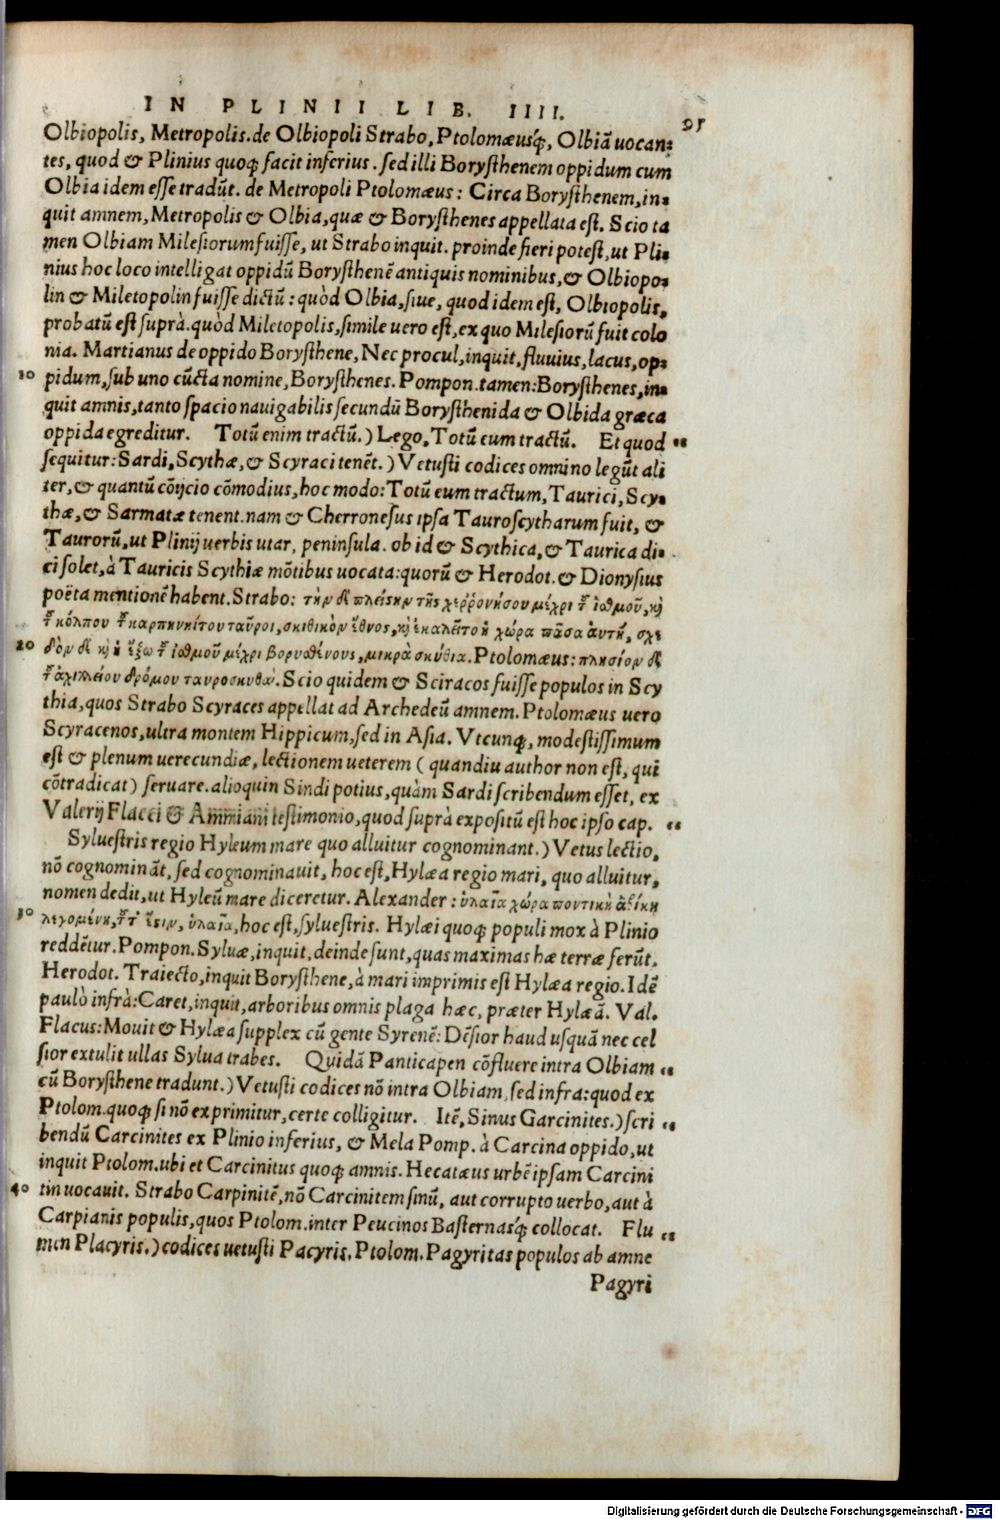 IN PLINII LIB. IIII. 95
Olbiopolis, Metropolis. de Olbiopoli Strabo, Ptolomæusq́;, Olbiā uocan⸗
tes, quod & Plinius quoq; facit inferius. sed illi Borysthenem oppidum cum
Olbia idem esse tradūt. de Metropoli Ptolomæus: Circa Borysthenem, in⸗
quit amnem, Metropolis & Olbia, quæ & Borysthenes appellata est. Scio ta
men Olbiam Milesiorum fuisse, ut Strabo inquit. proinde fieri potest, ut Pli⸗
nius hoc loco intelligat oppidū Borysthenē antiquis nominibus, & Olbiopo⸗
lin & Miletopolin fuisse dictū: quòd Olbia, siue, quod idem est, Olbiopolis,
probatū est suprà. quòd Miletopolis, simile uero est, ex quo Milesiorū fuit colo
nia. Martianus de oppido Borysthene, Nec procul, inquit, fluuius, lacus, op⸗
10 pidum, sub uno cūcta nomine, Borysthenes. Pompon. tamen: Borysthenes, in⸗
quit amnis, tanto spacio nauigabilis secundū Borysthenida & Olbida græca
oppida egreditur. Totū enim tractū.) Lego, Totū eum tractū. Et quod “
sequitur: Sardi, Scythæ, & Scyraci tenēt.) Vetusti codices omnino legūt ali
ter, & quantū cōijcio cōmodius, hoc modo: Totū eum tractum, Taurici, Scy⸗
thæ, & Sarmatæ tenent. nam & Cherronesus ipsa Tauroscytharum fuit, &
Taurorū, ut Plinij uerbis utar, peninsula. ob id & Scythica, & Taurica di⸗
ci solet, à Tauricis Scythiæ mōtibus uocata: quorū & Herodot. & Dionysius
poëta mentionē habent. Strabo: τὴν δὲ πλείστην τῆς χεῤῥονήσου μέχρι τοῦ ἰσθμοῦ, καὶ
τοῦ κόλπου τοῦ καρπηνκίτου ταῦροι, σκιθικὸν ἔθνος, καὶ ἐκαλεῖτο ἡ χώρα πᾶσα ἁυτὴ, σχε
20 δὸν δὲ καὶ ἡ ἔξω τοῦ ἰσθμοῦ μέχρι βορυσθένους, μικρὰ σκύθια. Ptolomæus: πλησίον δὲ
τοῦ ἀχιλλείου δρόμου ταυροσκυθῶν. Scio quidem & Sciracos fuisse populos in Scy
thia, quos Strabo Scyraces appellat ad Archedeū amnem. Ptolomæus uero
Scyracenos, ultra montem Hippicum, sed in Asia. Vtcunq;, modestissimum
est & plenum uerecundiæ, lectionem ueterem (quandiu author non est, qui
cōtradicat) seruare. alioquin Sindi potius, quàm Sardi scribendum esset, ex
Valerij Flacci & Ammiani testimonio, quod suprà expositū est hoc ipso cap. “
Syluestris regio Hyleum mare quo alluitur cognominant.) Vetus lectio,
nō cognomināt, sed cognominauit, hoc est, Hylæa regio mari, quo alluitur,
nomen dedit, ut Hyleū mare diceretur. Alexander: ὑλαῖα χώρα ποντικὴ ἀβίκη
30 λεγομένη, ὑλαῖα, hoc est, syluestris. Hylæi quoq; populi mox à Plinio
reddētur. Pompon. Syluæ, inquit, deinde sunt, quas maximas hæ terræ ferūt.
Herodot. Traiecto, inquit Borysthene, à mari imprimis est Hylæa regio. Idē
paulò infrà: Caret, inquit, arboribus omnis plaga hæc, præter Hylæā. Val.
Flacus: Mouit & Hylæa supplex cū gente Syrenē: Dēsior haud usquā nec cel
sior extulit ullas Sylua trabes. Quidā Panticapen cōfluere intra Olbiam “
cū Borysthene tradunt.) Vetusti codices nō intra Olbiam, sed infra: quod ex
Ptolom. quoq; si nō exprimitur, certe colligitur. Itē, Sinus Garcinites.) scri “
bendū Carcinites ex Plinio inferius, & Mela Pomp. à Carcina oppido, ut
inquit Ptolom. ubi et Carcinitus quoq; amnis. Hecatæus urbē ipsam Carcini
40 tin uocauit. Strabo Carpinitē, nō Carcinitem sinū, aut corrupto uerbo, aut à
Carpianis populis, quos Ptolom. inter Peucinos Basternasq́; collocat. Flu “
men Placyris.) codices uetusti Pacyris. Ptolom. Pagyritas populos ab amne
Pagyri
Digitalisierung gefördert durch die Deutsche Forschungsgemeinschaft - DFG